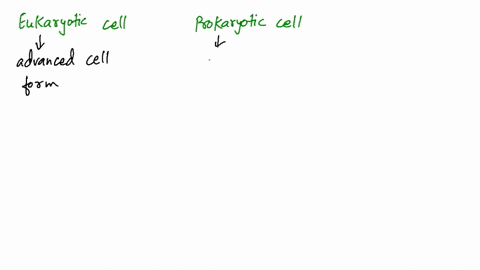 Eukaryotic cell Prokaryotic cell
advanced cell
form